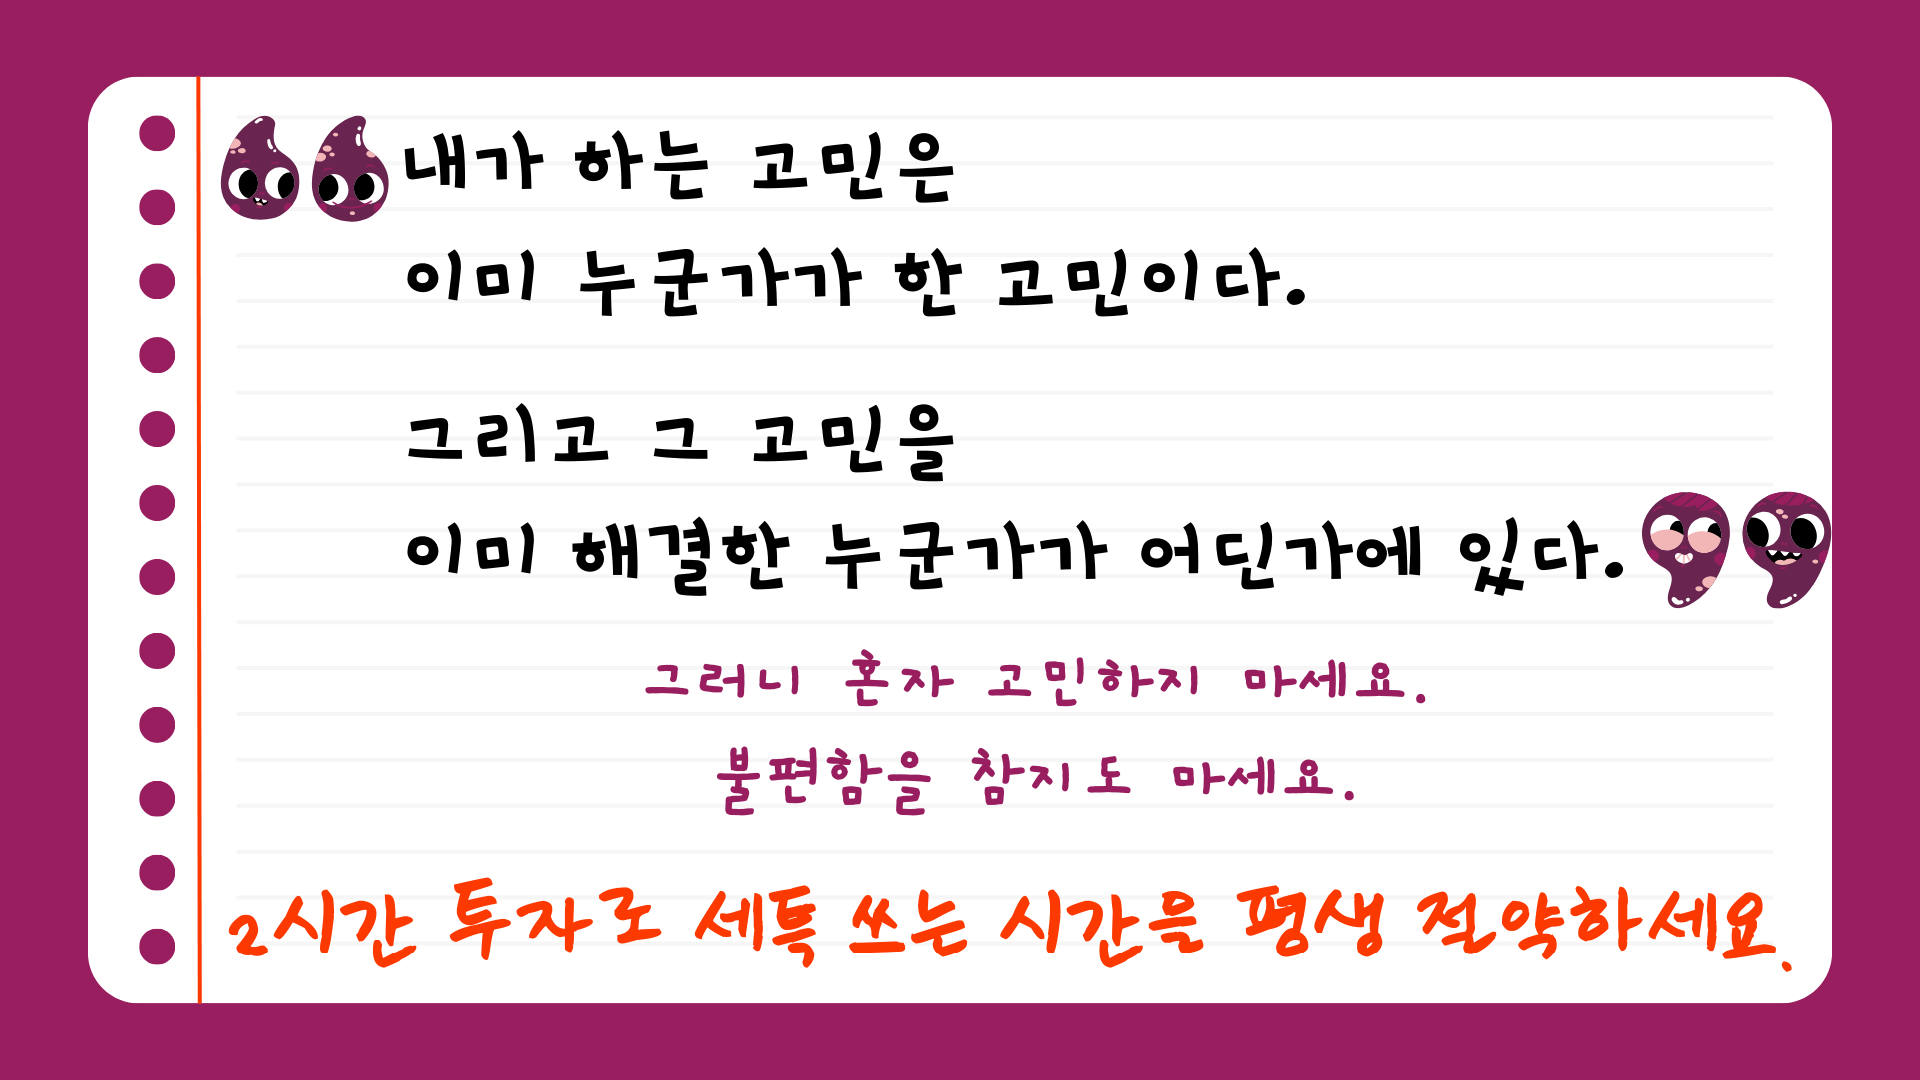 내가 하는 고민은
이미 누군가가 한 고민이다.
그리고 그 고민을
이미 해결한 누군가가 어딘가에 있다.
그러니 혼자 고민하지 마세요.
불편함을 참지도 마세요.
2시간 투자로 세특 쓰는 시간을 평생 절약하세요.